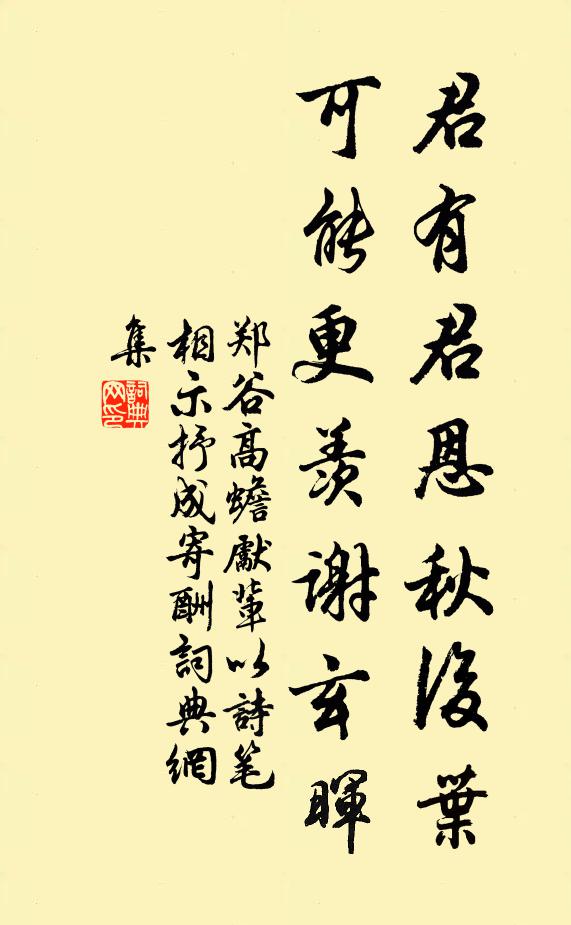 君有君恩秋後葉
可能更羨謝玄暉
郑谷高蟾獻輩以詩笔
相示抒成寄酬詞典網
集
詞典
网印